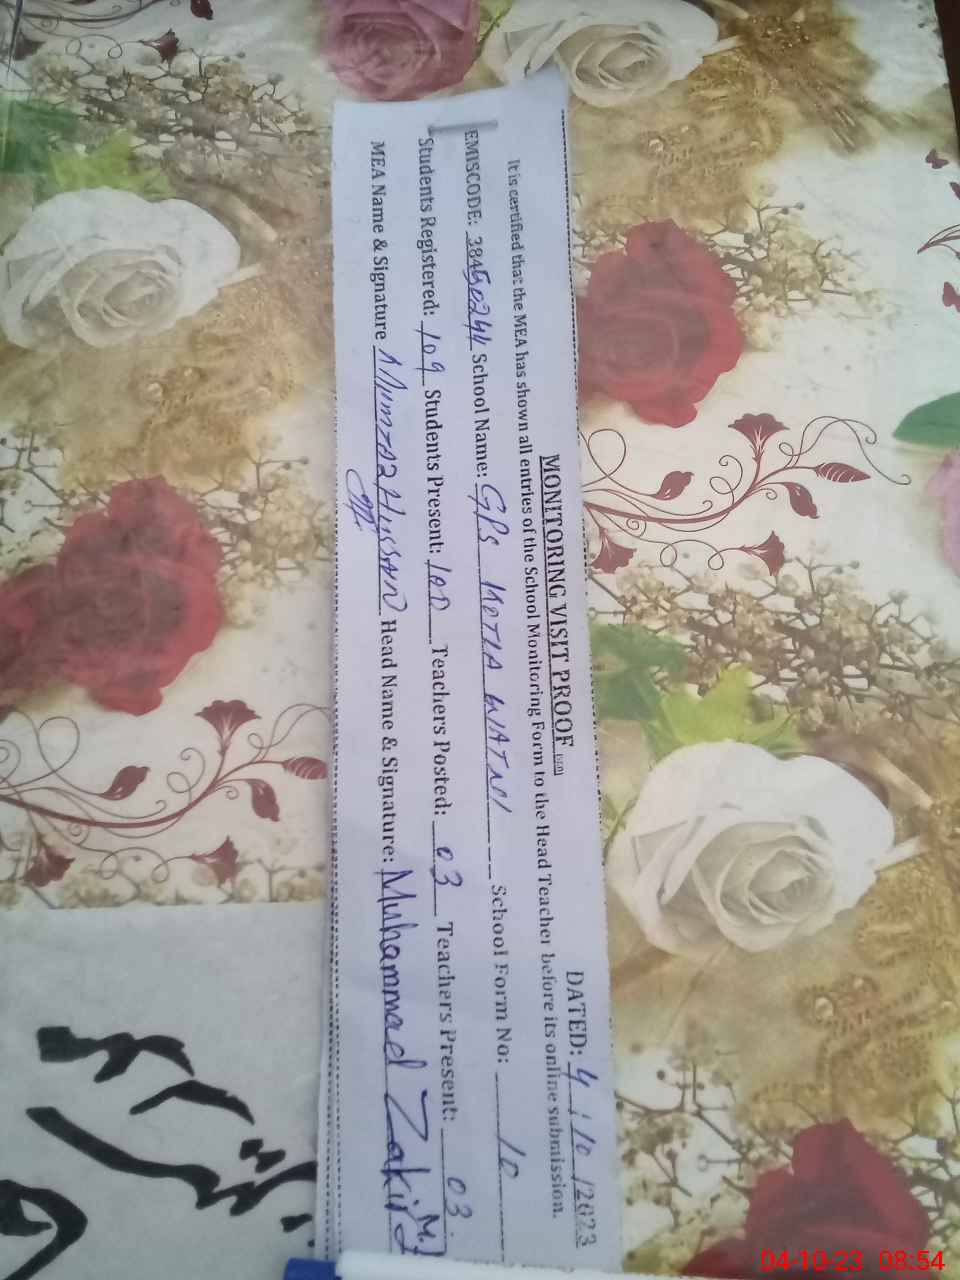 MONITORING VISIT PROOF DATED: 4/10/2023
It is certified that the MEA has shown all entries of the School Monitoring Form to the Head Teacher before its online submission.
EMISCODE: 38450244 School Name: GPS KOTLA School Form No: 10
Students Registered: 109 Students Present: 100 Teachers Posted: 03 Teachers Present: 03
MEA Name & Signature Mumtaz Hussain Head Name & Signature: Muhammad Zakir
04-10-23 08:54